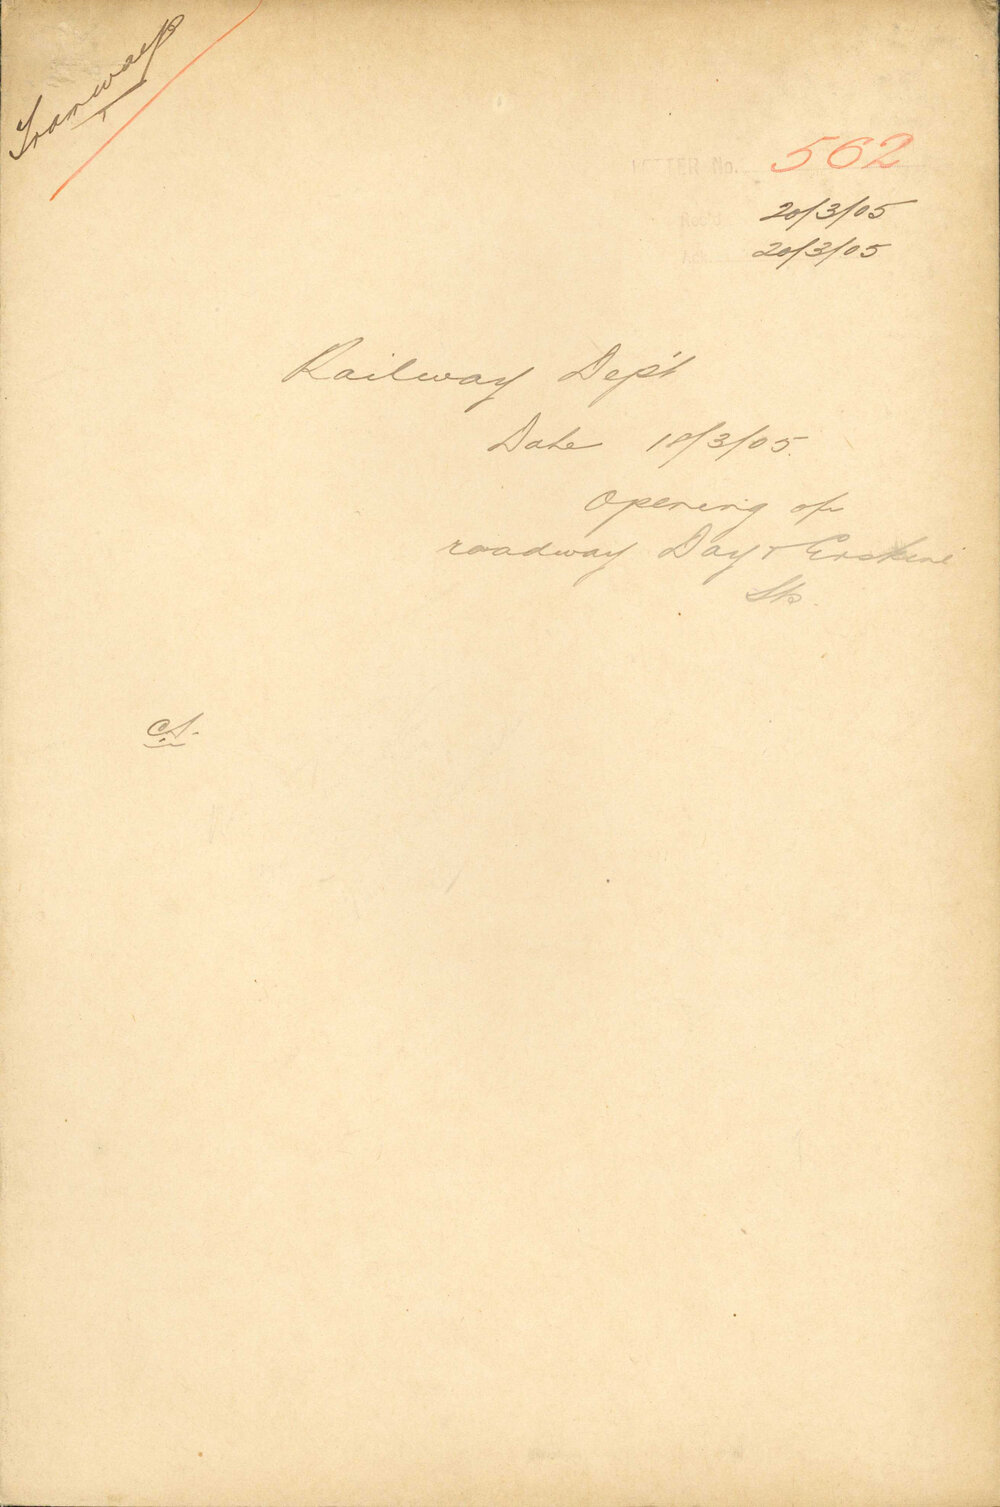 Tramways
LETTER No. 562
Rec'd 20/3/05
20/3/05
Railway Dep't
Date 18/3/05.
Opening of
roadway Day & Erskine
Sts.